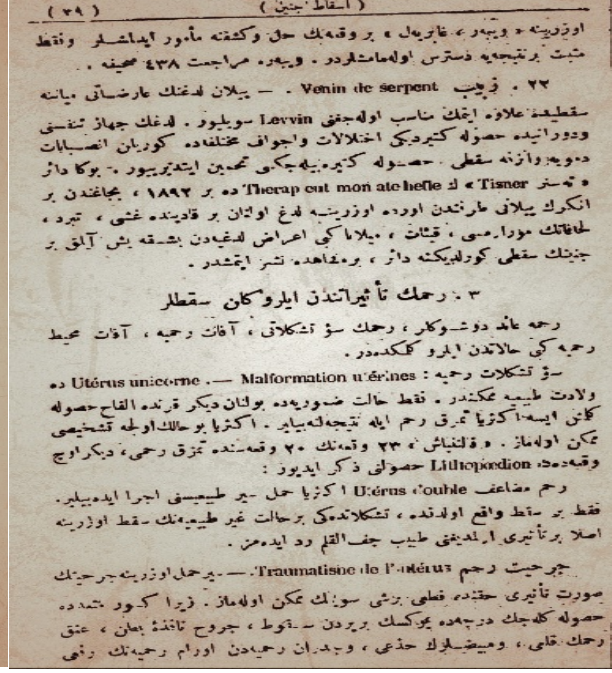 ( ٣٩ ) ( اسقاط جنین )
اوزرینه « ویبر ، غابریه‌ل » بر وقعه‌نك حل وكشفنه مأمور ایدلمشلر وفقط
مثبت بر نتیجه‌یه دسترس اوله‌مامشلردر . ویبره مراجعت ٤٣٨ صحیفه .
٢٢ . Venin de serpent . — ییلان لدغنك عارضاتی میاننه
سقطیده علاوه ایتمك مناسب اوله‌جغنی Levvin سویلیور . لدغك جهاز تنفسی
ودورانیده حصوله كتیردیكی اختلالات واجواف مختلفه‌ده كوریلن انصبابات
دمویه وازنه سقطی حصوله كتیره‌بیله‌جكنی تخمین ایتدیرییور . بوكا دائر
« ته‌سنر Tisner » ك Therap eut mon ate hefle ده بر ١٨٩٢ ، بجاغندن بر
انكرك ییلانی طرفندن اوره‌ده اوزرینه لدغ اولنان بر قادینده غشی ، تبرد ،
لحافاتك مورارمسی ، قیئات ، میلانا كبی اعراض لدغیه‌دن بشقه بش آیلق بر
جنینك سقطی كورلدیكنه دائر ، بر مشاهده نشر ایتمشدر .
٣ . رحمك تأثیراتندن ایلروكلن سقطلر
رحمه عائد دوشوكلر ، رحمك سؤ تشكلاتی ، آفات رحمیه ، آفات محیط
رحمیه كبی حالاتدن ایلرو كلمكده‌در .
سؤ تشكلات رحمیه : Utérus unicorne .— Malformation utérines ده
ولادت طبیعیه ممكندر . فقط حالت ضموریه‌ده بولنان دیكر قرنده القاح حصوله
كلمش ایسه اكثریا تمزق رحم ایله نتیجه‌لنه‌بیلیر . اكثریا بو حالك اولجه تشخیصی
ممكن اوله‌ماز . « قلنباش » ٢٣ وقعه‌نك ٢٠ وقعه‌سنده تمزق رحمی ، دیكر اوچ
وقعه‌ده Lithopœdion حصولنی ذكر ایدیور :
رحم مضاعف Utérus double اكثریا حمل سیر طبیعیسنی اجرا ایده‌بیلیر.
فقط بر سقط واقع اولدقده ، تشكلاتده‌كی بر حالت غیر طبیعیه‌نك سقط اوزرینه
اصلا بر تأثیری اولمدیغنی طبیب جف القلم رد ایده‌مز .
جرحیت رحم Traumatisme de l'utérus .— سیر حمل اوزرینه جرحیتك
صورت تأثیری حقنده قطعی بر شی سویلمك ممكن اوله‌ماز . زیرا كسور متعدده
حصوله كله‌جك درجه‌ده یوكسك بر یردن سقوط ، جروح نافذۀ بطن ، عنق
رحمك قطعی ، ومبیضلرك حذفی ، وجدران رحمیه‌دن اورام رحمیه‌نك رفعی